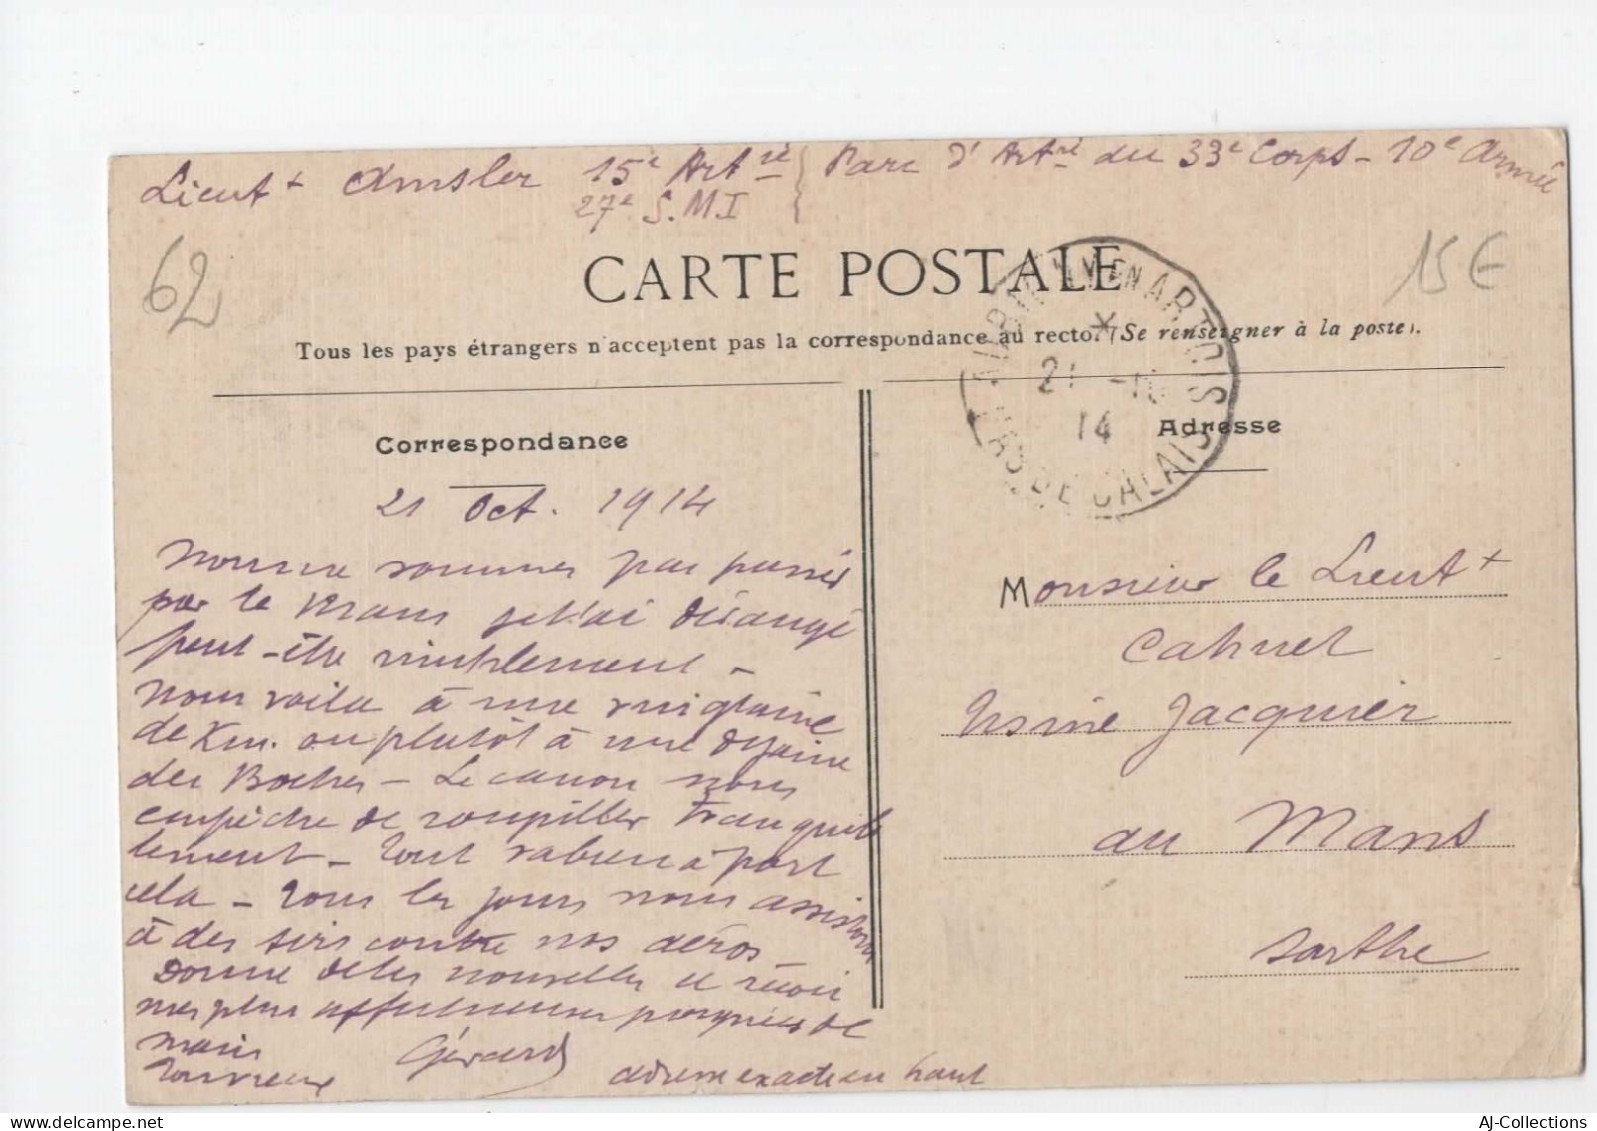 Lieut t Amsler 15e Art rie } Parc d'Art rie du 33e Corps - 10e Armée
27e S.M.I
62
15 €
CARTE POSTALE
Tous les pays étrangers n'acceptent pas la correspondance au recto. (Se renseigner à la poste).
AUBIGNY EN ARTOIS
*
21 -10
14
PAS DE CALAIS
Correspondance
21 Oct. 1914
Nous ne sommes pas passés
par le Mans je t'ai dérangé
peut-être inutilement -
Nous voila à une vingtaine
de Km. ou plutôt à une dizaine
des Boches - Le canon nous
empêche de roupiller tranquil
lement - Tout va bien à part
cela - Tous les jours nous assistons
à des tirs contre nos aéros -
Donne de tes nouvelles et reçois
mes plus affectueuses poignées de
main
Gérard
adresse exacte en haut
Adresse
Monsieur le Lieut t
Cahuet
Usine Jacquier
au Mans
Sarthe
AJ-Collections